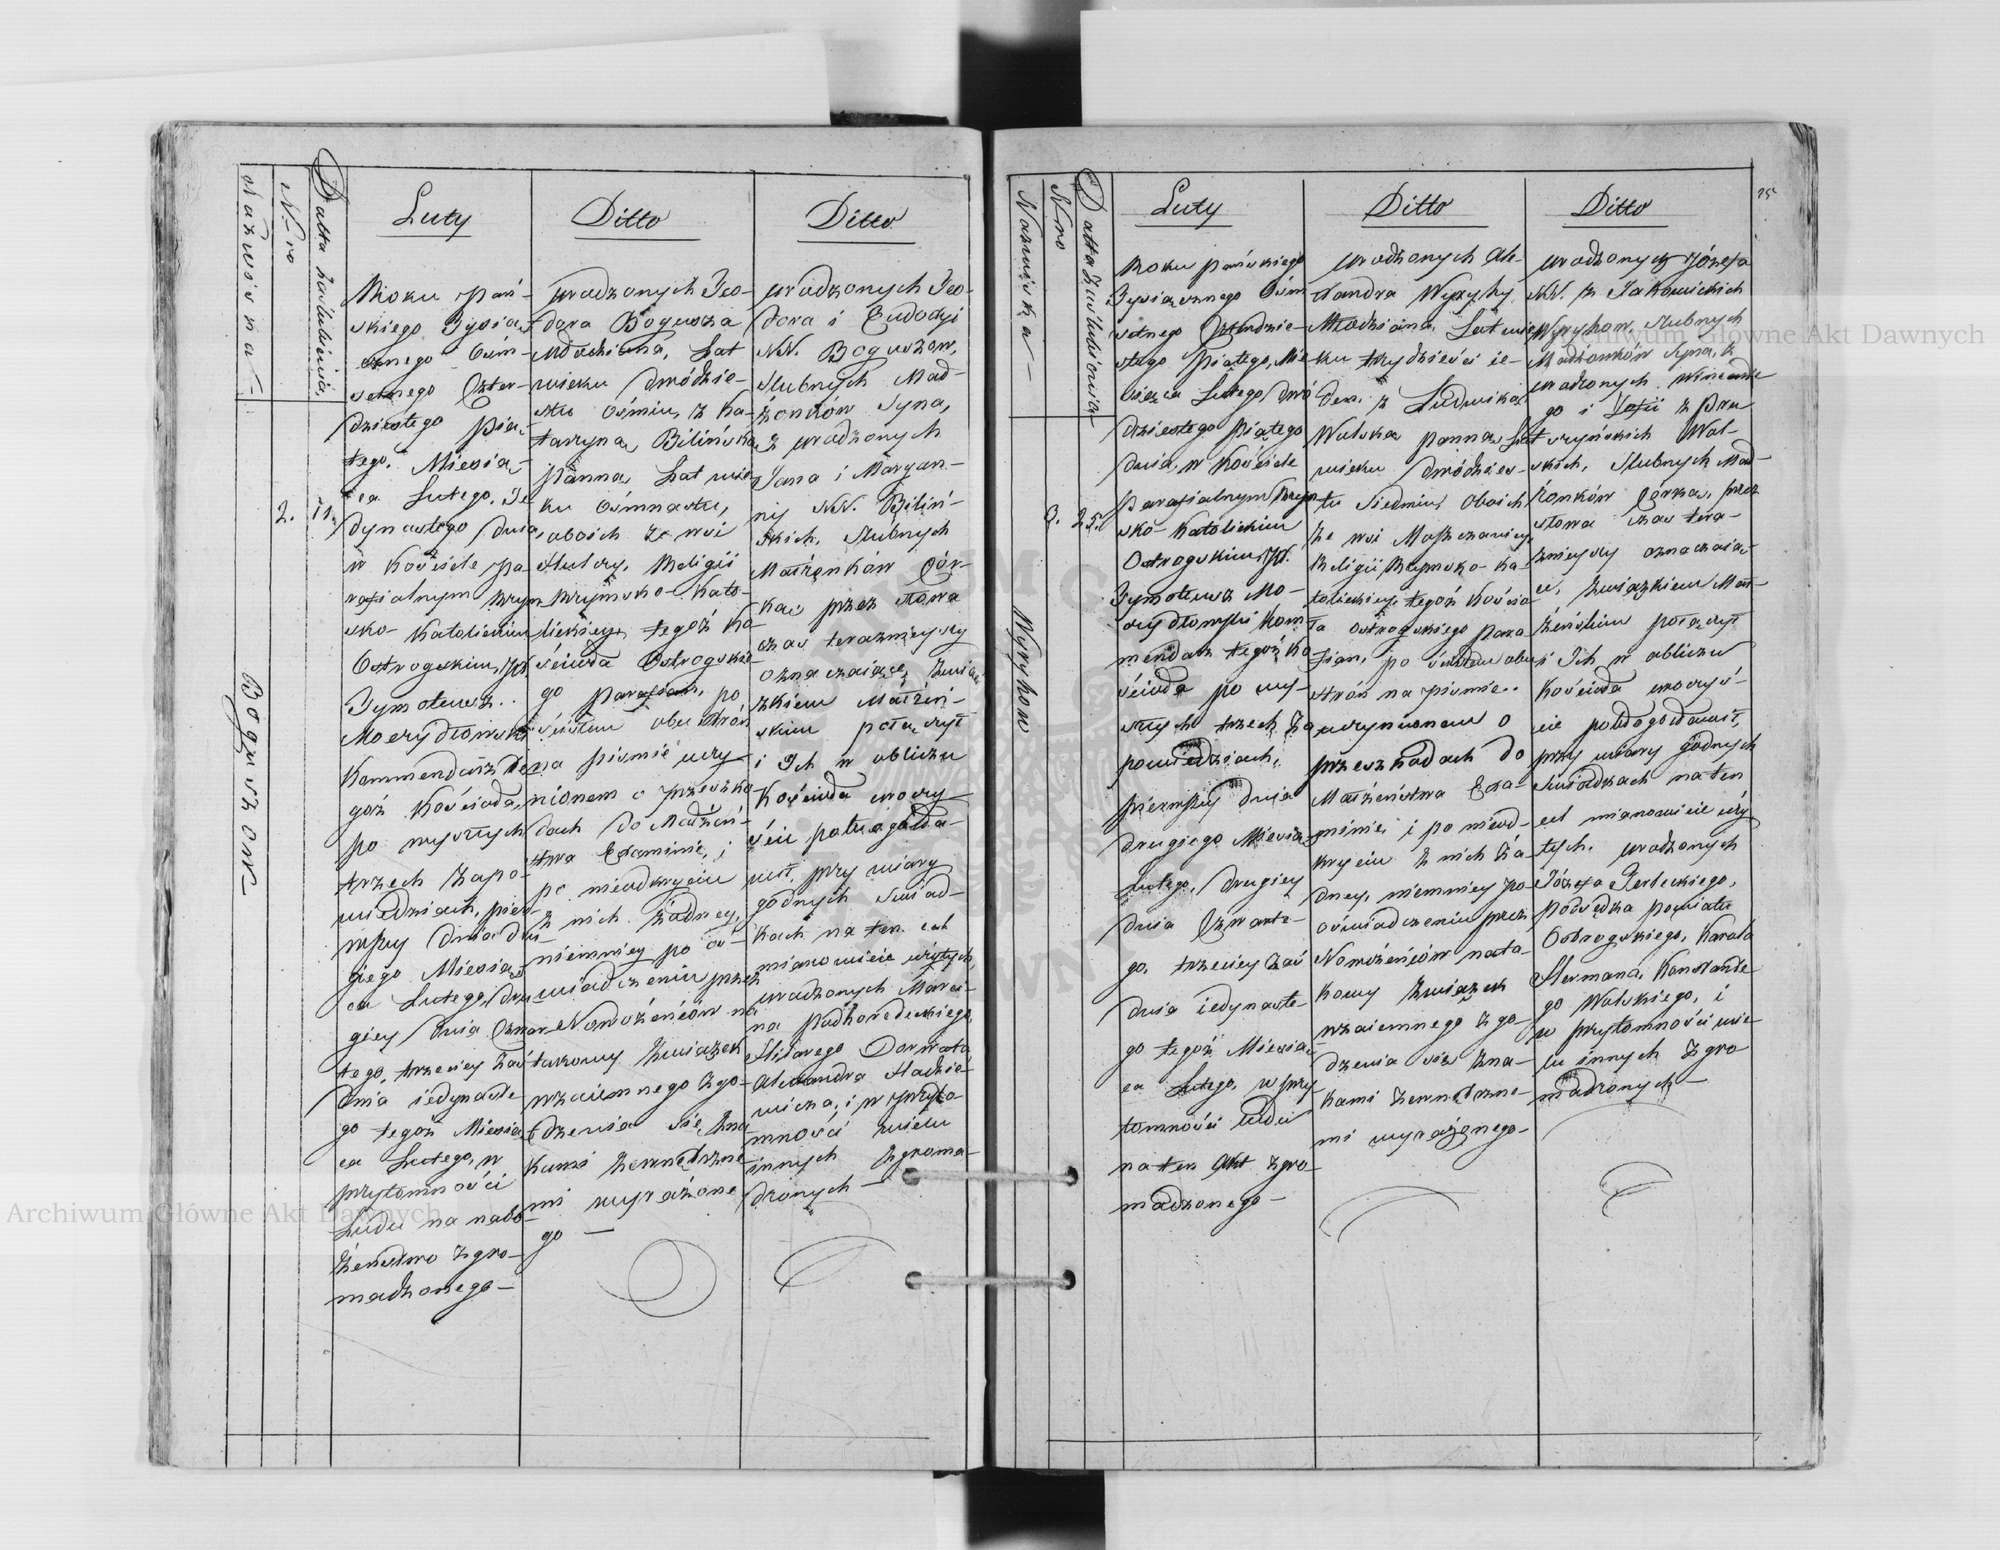 Nazwiska
N-ro
Datta Zaślubienia
Luty
Roku Pań-
skiego Tysią-
cznego Ośm-
setnego Czter-
dziestego Pią-
tego, Miesią-
ca Lutego, Je-
dynastego dnia
w Kościele pa-
rafialnym Rzym-
sko-Katolickim
Ostrogskim, JX.
Tymoteusz
Moczydłowski
Kommendarz te-
goż Kościoła,
po wyszłych
trzech Zapo-
wiedziach, pier-
wszy dnia dru-
giego Miesią-
ca Lutego, dru-
giey dnia Czwar-
tego, trzeciey Zaś
dnia iedynaste-
go tegoż Miesią-
ca Lutego, w
przytomności
Ludu na nabo-
żeństwo zgro-
madzonego
2. 11.
Boguszow
Ditto
urodzonych Teo-
dora Bogusza
Młodziana, Lat
wieku dwódzie-
stu Ośmiu, z Ka-
tarzyną Bilińską
Panną Lat wie-
ku Ośmnastu,
oboich ze wsi
Religii
Rzymsko-Kato-
lickiey, tegoż Ko-
ścioła Ostrogskie-
go Parafian, po
ścisłem obu stron
na piśmie uczy-
nionem o przeszko-
dach do Małżeń-
stwa Examinie, i
po nieodkryciu
z nich żadney,
niemniey po oś-
wiadczeniu przez
Nowożeńców na
takowy Związek
wzaiemnego zgo-
dzenia się zna-
kami zewnętrzne-
mi wyrażone-
go
Ditto
urodzonych Teo-
dora i Eudoxyi
NN. Boguszow,
Slubnych Mał-
żonków Syna,
z urodzonych
Jana i Maryan-
ny NN. Biliń-
skich, Slubnych
Małżonków Cór-
ką, przez słowa
czas teraznieyszy
oznaczaiące, Zwią-
zkiem Małżeń-
skim połączył
i Ich w obliczu
Kościoła uroczy-
ście pobłogosła-
wił, przy wiary
godnych Swiad-
kach na ten cel
mianowicie użytych,
urodzonych Marci-
na Podhorodeckiego,
Hilarego
Alexandra
i w przyto-
mności wielu
innych zgroma-
dzonych
Nazwiska
N-ro
Datta Zaślubienia
Luty
Roku Pańskiego
Tysiącznego Ośm-
setnego Czterdzie-
stego Piątego, Mie-
siąca Lutego dwó-
dziestego piątego
dnia, w Kościele
Parafialnym Rzym-
sko-Katolickim
Ostrogskim, JX.
Tymoteusz Mo-
czydłowski Kom-
mendarz tegoż Ko-
ścioła po wy-
szłych trzech Za-
powiedziach,
pierwszy dnia
drugiego Miesiąca
Lutego, drugiey
dnia Czwarte-
go, trzeciey Zaś
dnia iedynaste-
go tegoż Miesią-
ca Lutego, w przy-
tomności Ludu
na ten Akt zgro-
madzonego
3. 25.
Wyrykow
Ditto
urodzonych Ale-
xandra
Młodziana, Lat wie-
ku trzydzieści ie-
den, z Ludwiką
Wolską Panną Lat
wieku dwódzies-
tu Siedmiu, oboich
ze wsi
Religii Rzymsko-Ka-
tolickiey, tegoż Kościo-
ła Ostrogskiego Para-
fian, po ścisłem obu
stron na piśmie
uczynionem o
przeszkodach do
Małżeństwa Exa-
minie, i po nieod-
kryciu z nich ża-
dney, niemniey po
oświadczeniu przez
Nowożeńców na ta-
kowy Związek
wzaiemnego zgo-
dzenia się zna-
kami zewnętrzne-
mi wyrażonego
Ditto
urodzonych Józefa
NN. z Jakowickich
Slubnych
Małżonków Syna, z
urodzonych Wincente-
go i Zofii z Pru-
szyńskich Wol-
skich, Slubnych Mał-
żonków Córką, przez
słowa czas tera-
znieyszy oznaczaią-
ce, Związkiem Mał-
żeńskim połączył
i Ich w obliczu
Kościoła uroczyś-
cie pobłogosławił,
przy wiary godnych
Swiadkach na ten
cel mianowicie uży-
tych, urodzonych
Józefa Terleckiego,
powiatu
Ostrogskiego, Karola
Hermana, Konstante-
go Wolskiego, i
w przytomności wie-
lu innych zgro-
madzonych
Archiwum Główne Akt Dawnych
Archiwum Główne Akt Dawnych